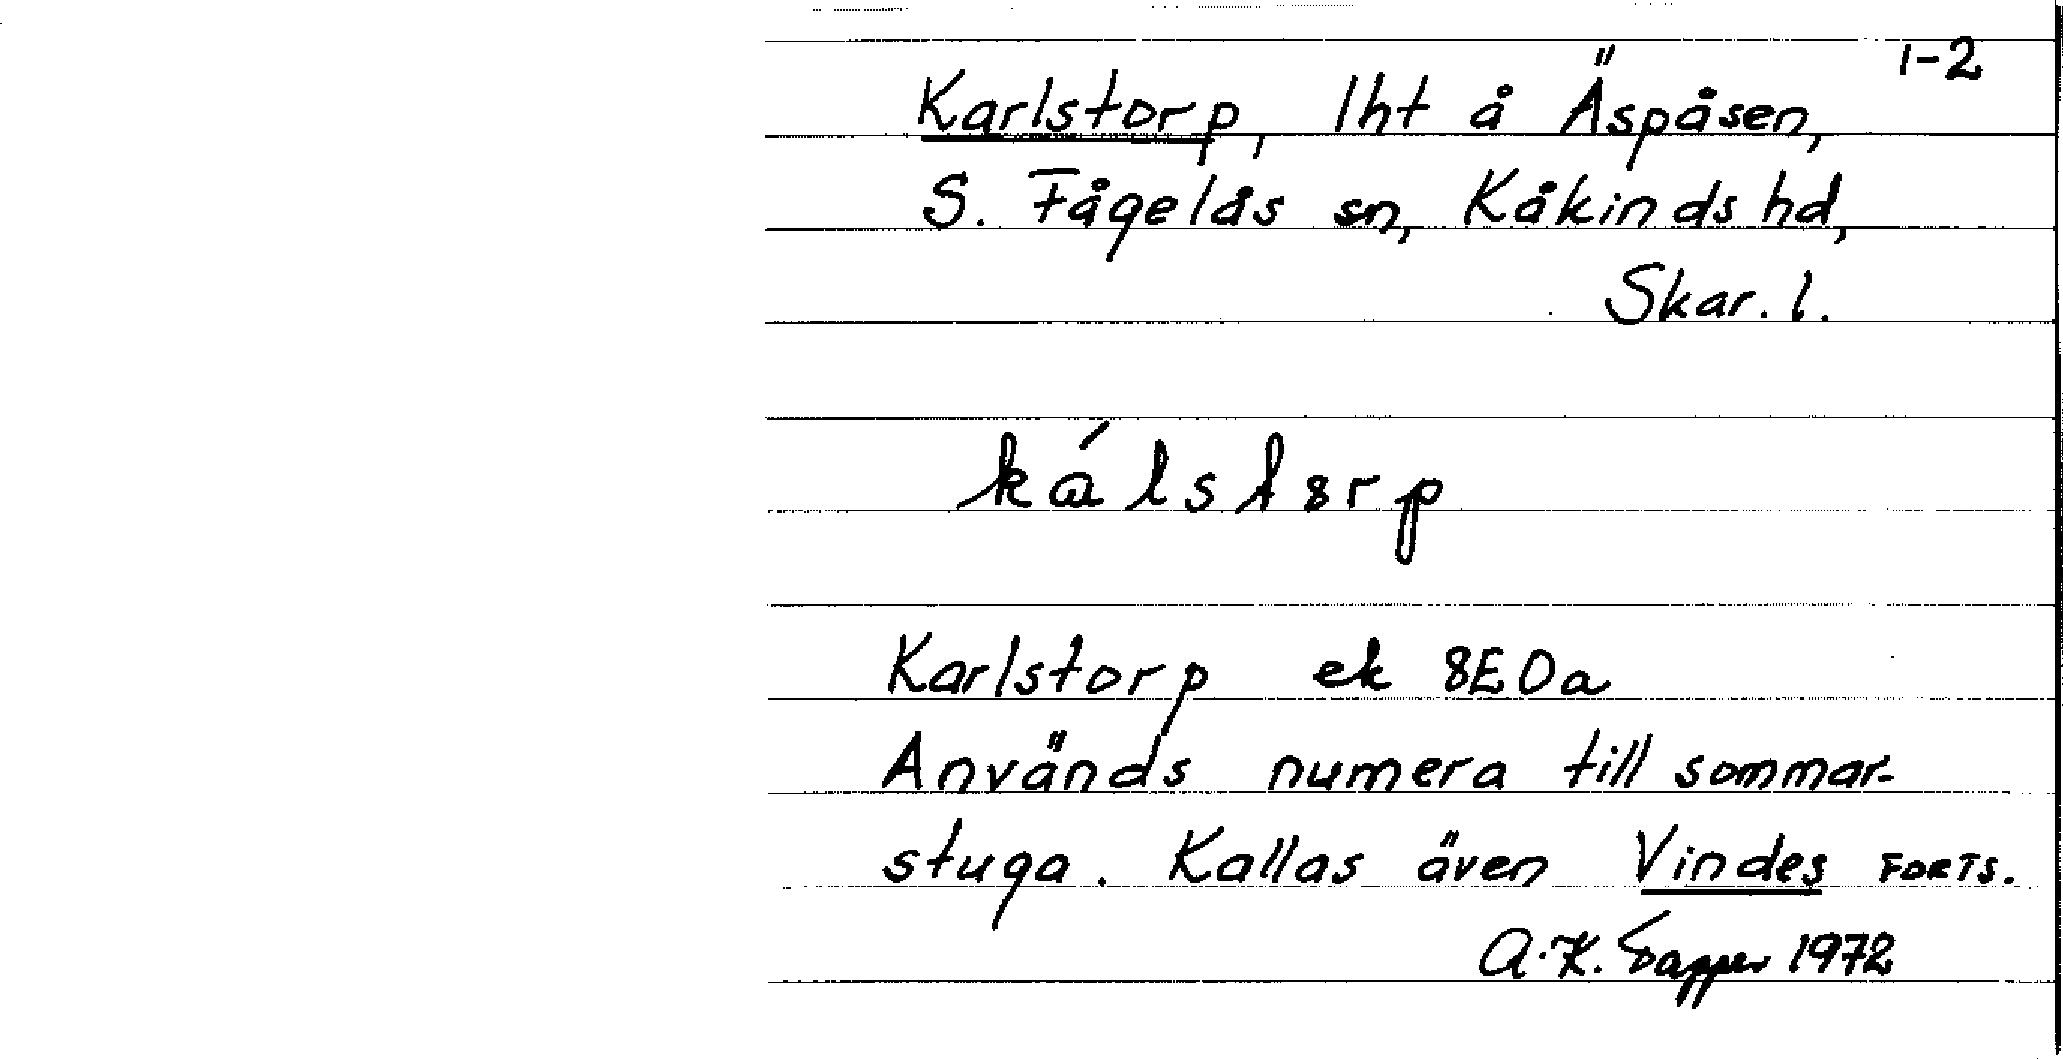 1-2
Karlstorp, lht å Äspåsen,
S. Fågelås sn, Kåkinds hd,
Skar. l.
Karlstorp ek 8E0a
Används numera till sommar-
stuga. Kallas även Vindes FORTS.
A.K. 1972